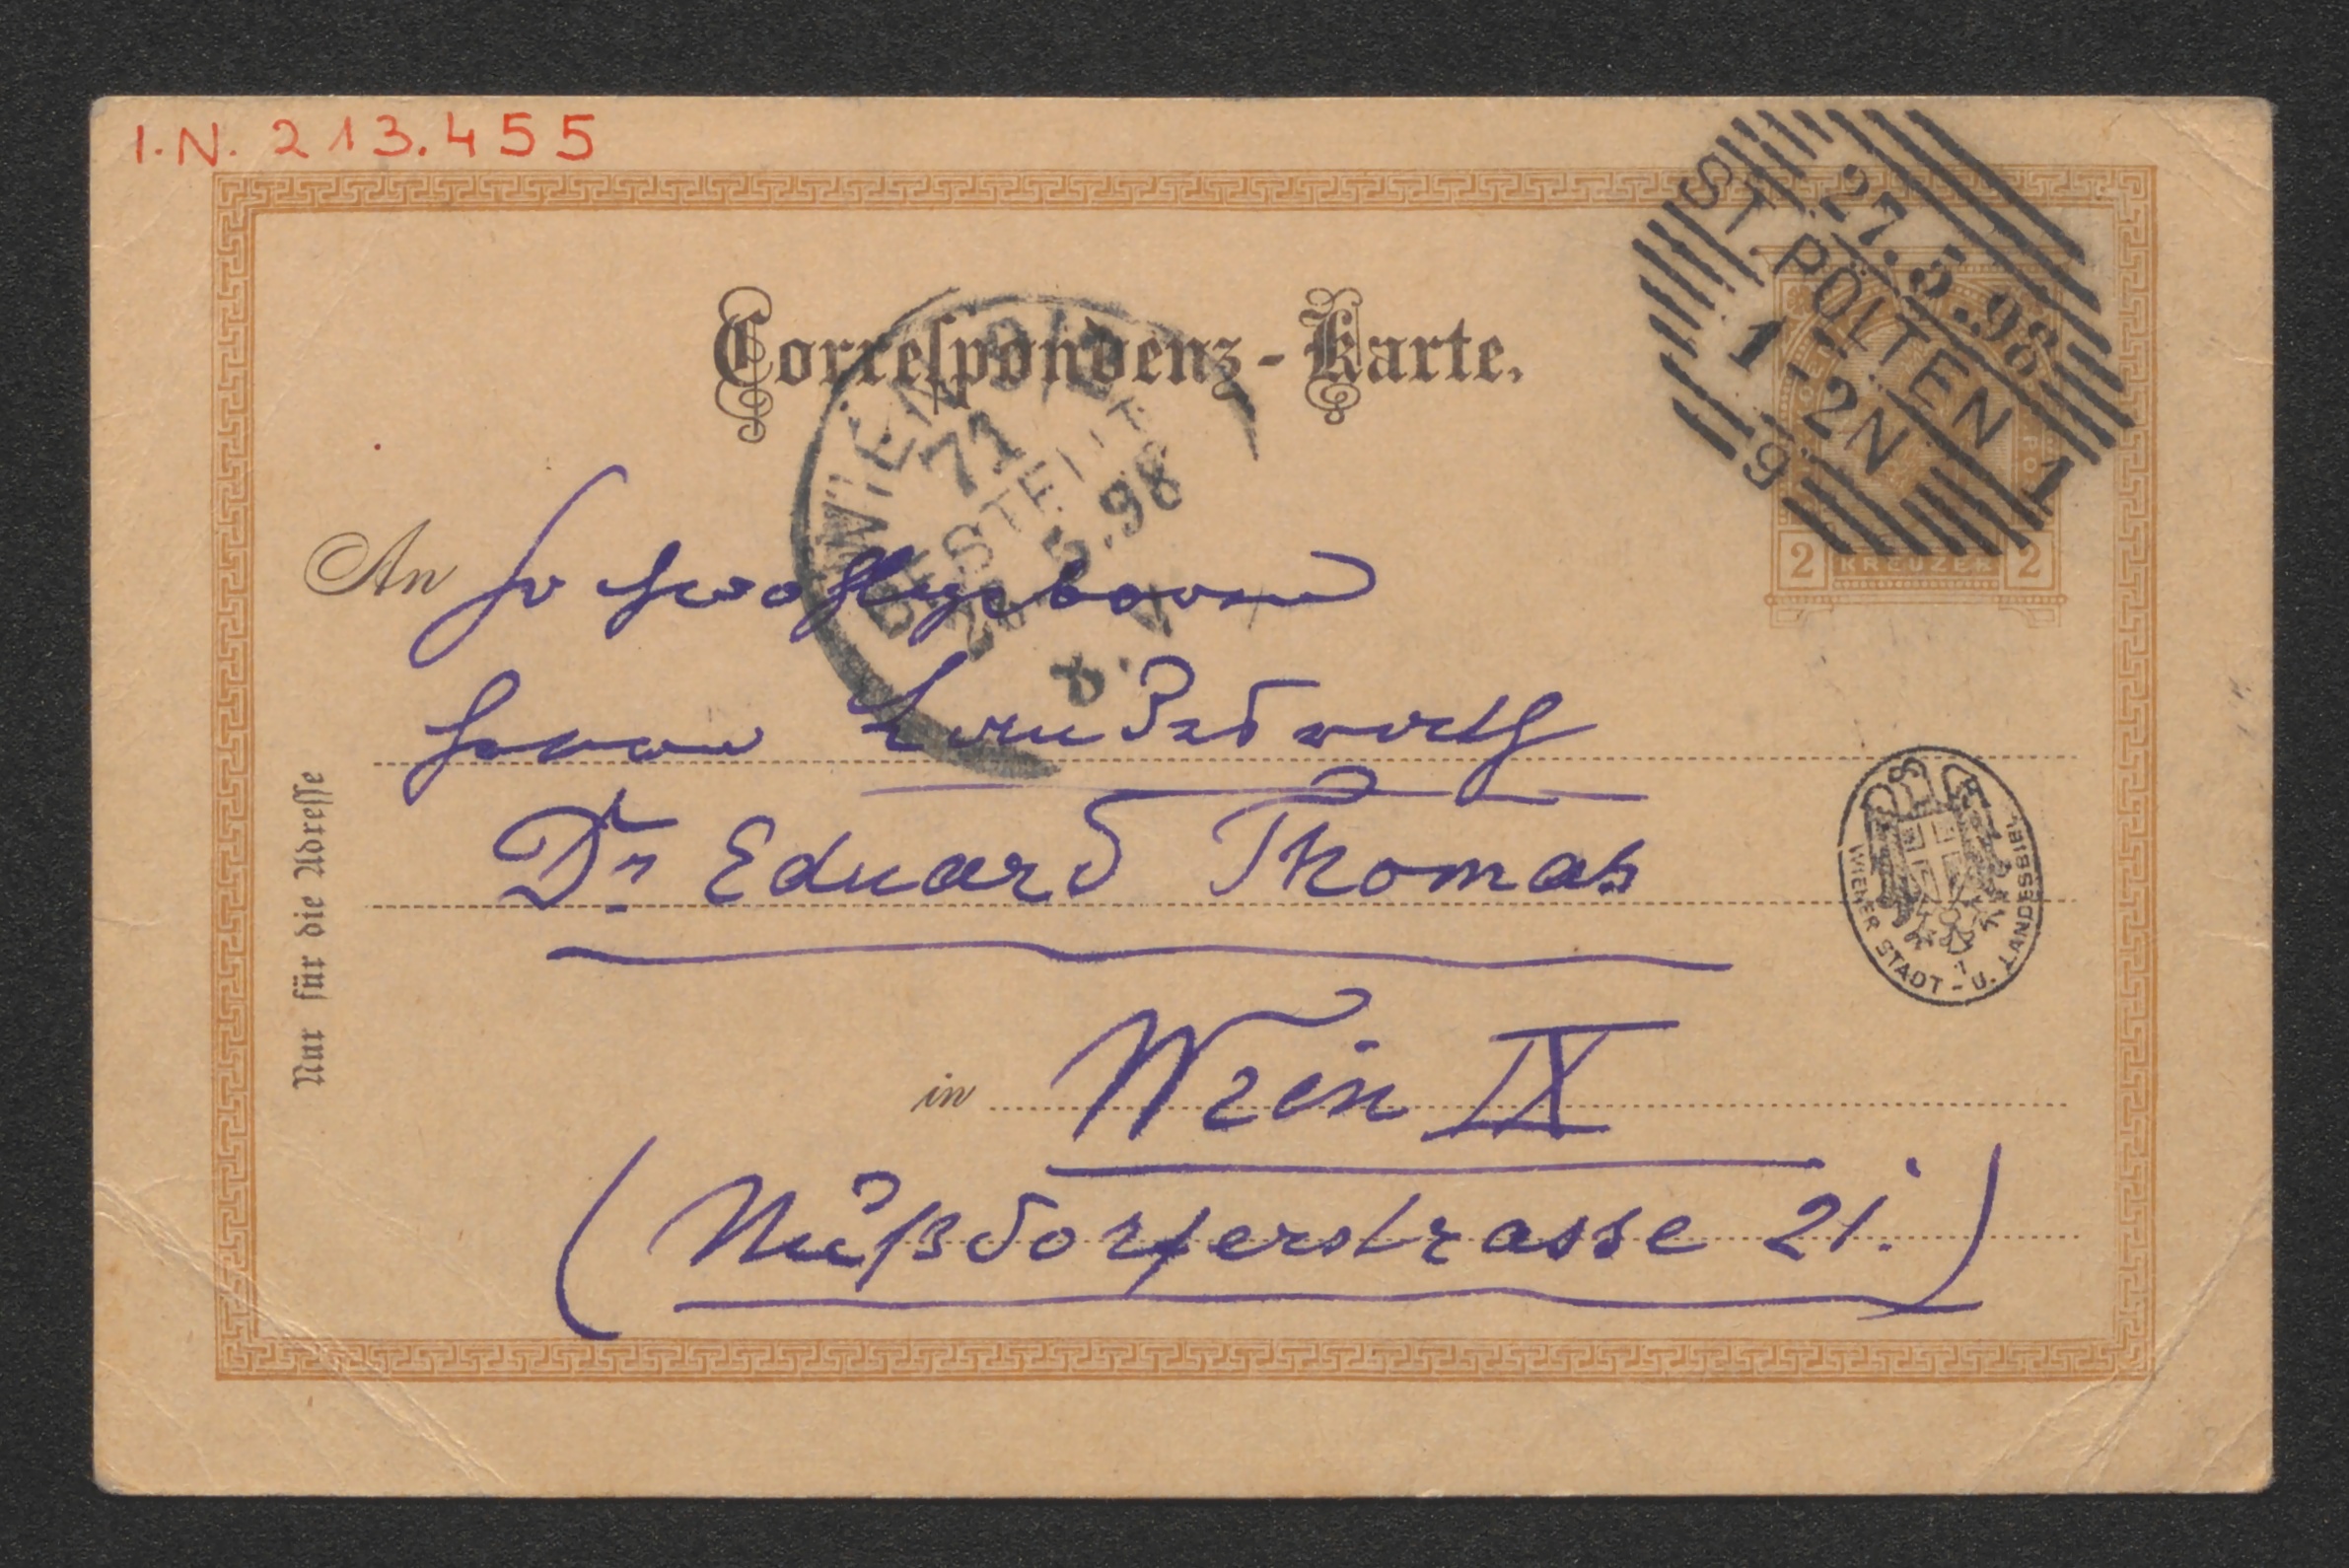 I.N. 213.455
ST. PÖLTEN 1
27.5.98
1-2N
9
Correspondenz-Karte.
WIEN
71
BESTELLT
5.98
8.V
An
Herrn
Dr Eduard Thomas
in Wien IX
(Nußdorferstrasse 21.)
Nur für die Adresse
2 KREUZER 2
WIENER STADT - U. LANDESBIBL.